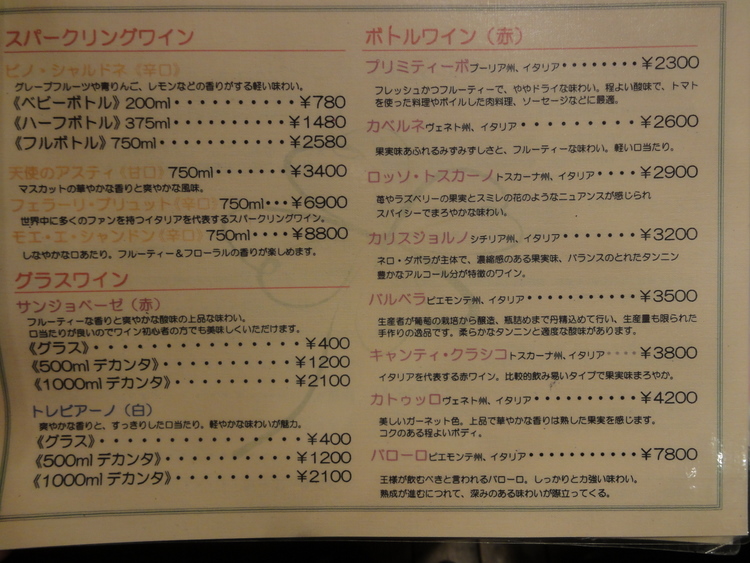 スパークリングワイン
ピノ・シャルドネ《辛口》
グレープフルーツや青りんご、レモンなどの香りがする軽い味わい。
《ベビーボトル》200ml・・・・・・・・・・¥780
《ハーフボトル》375ml・・・・・・・・・¥1480
《フルボトル》750ml・・・・・・・・・・¥2580
天使のアスティ《甘口》750ml・・・・・¥3400
マスカットの華やかな香りと爽やかな風味。
フェラーリ・ブリュット《辛口》750ml・・・・¥6900
世界中に多くのファンを持つイタリアを代表するスパークリングワイン。
モエ・エ・シャンドン《辛口》750ml・・・・¥8800
しなやかな口あたり。フルーティー&フローラルの香りが楽しめます。
グラスワイン
サンジョベーゼ(赤)
フルーティーな香りと爽やかな酸味の上品な味わい。
口当たりが良いのでワイン初心者の方でも美味しくいただけます。
《グラス》・・・・・・・・・・・・・・・・¥400
《500mlデカンタ》・・・・・・・・・・¥1200
《1000mlデカンタ》・・・・・・・・・¥2100
トレビアーノ(白)
爽やかな香りと、すっきりした口当たり、軽やかな味わいが魅力。
《グラス》・・・・・・・・・・・・・・・・¥400
《500mlデカンタ》・・・・・・・・・・¥1200
《1000mlデカンタ》・・・・・・・・・¥2100
ボトルワイン(赤)
プリミティーボプーリア州、イタリア・・・・・・・・¥2300
フレッシュかつフルーティーで、ややドライな味わい。程よい酸味で、トマト
を使った料理やボイルした肉料理、ソーセージなどに最適。
カベルネヴェネト州、イタリア・・・・・・・・・¥2600
果実味あふれるみずみずしさと、フルーティーな味わい。軽い口当たり。
ロッソ・トスカーノトスカーナ州、イタリア・・・・・¥2900
苺やラズベリーの果実とスミレの花のようなニュアンスが感じられ
スパイシーでまろやかな味わい。
カリスジョルノシチリア州、イタリア・・・・・・・・¥3200
ネロ・ダボラが主体で、濃縮感のある果実味、バランスのとれたタンニン
豊かなアルコール分が特徴のワイン。
バルベラピエモンテ州、イタリア・・・・・・・・・¥3500
生産者が葡萄の栽培から醸造、瓶詰めまで丹精込めて行い、生産量も限られた
手作りの逸品です。柔らかなタンニンと適度な酸味があります。
キャンティ・クラシコトスカーナ州、イタリア・・・・¥3800
イタリアを代表する赤ワイン。比較的飲み易いタイプで果実味まろやか。
カトゥッロヴェネト州、イタリア・・・・・・・・・¥4200
美しいガーネット色。上品で華やかな香りは熟した果実を感じます。
コクのある程よいボディ。
バローロピエモンテ州、イタリア・・・・・・・・・¥7800
王様が飲むべきと言われるバローロ。しっかりと力強い味わい。
熟成が進むにつれて、深みのある味わいが際立ってくる。